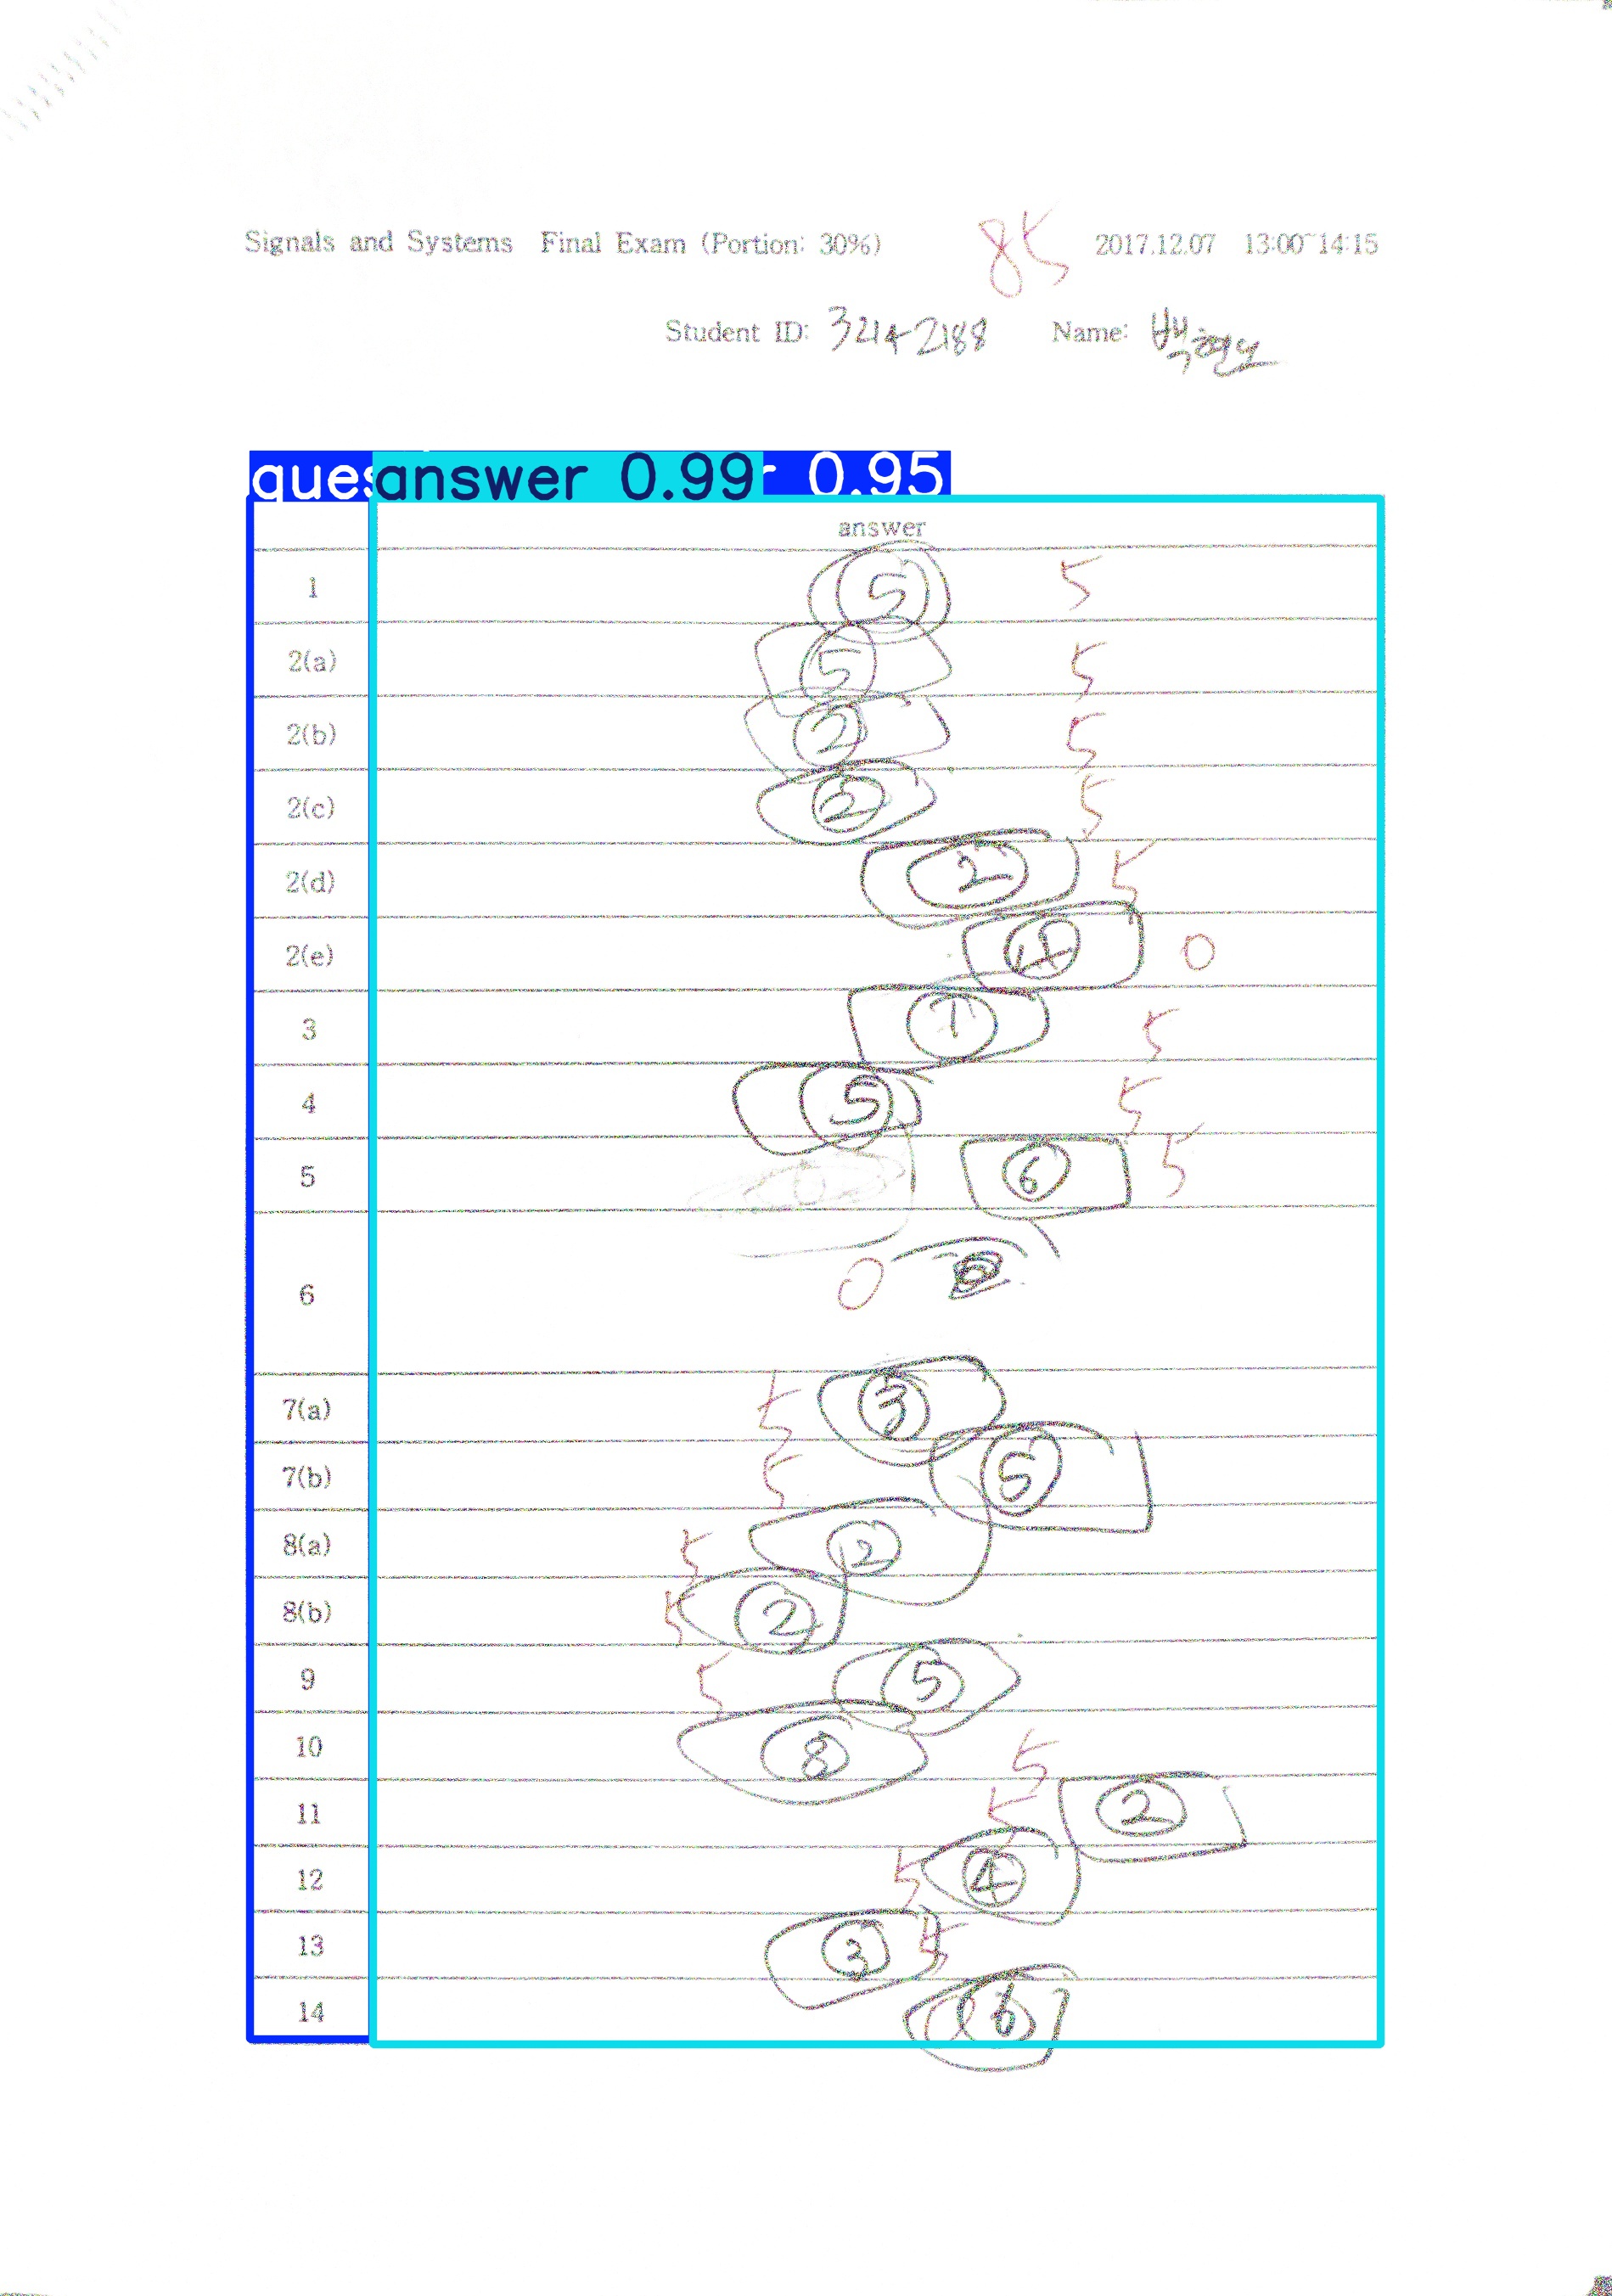 Signals and Systems Final Exam (Portion: 30%) 85 2017.12.07 13:00~14:15
Student ID: 3214-2188 Name: 박현도
answer 0.99 0.95
answer
1 5 5
2(a) 5 5
2(b) 2 5
2(c) 2 5
2(d) 2 5
2(e) 4 0
3 1 5
4 5 5
5 6 5
6 0
7(a) 5 3
7(b) 5 5
8(a) 5 2
8(b) 5 2
9 5 5
10 8 5
11 5 2
12 5 4
13 3 5
14 6